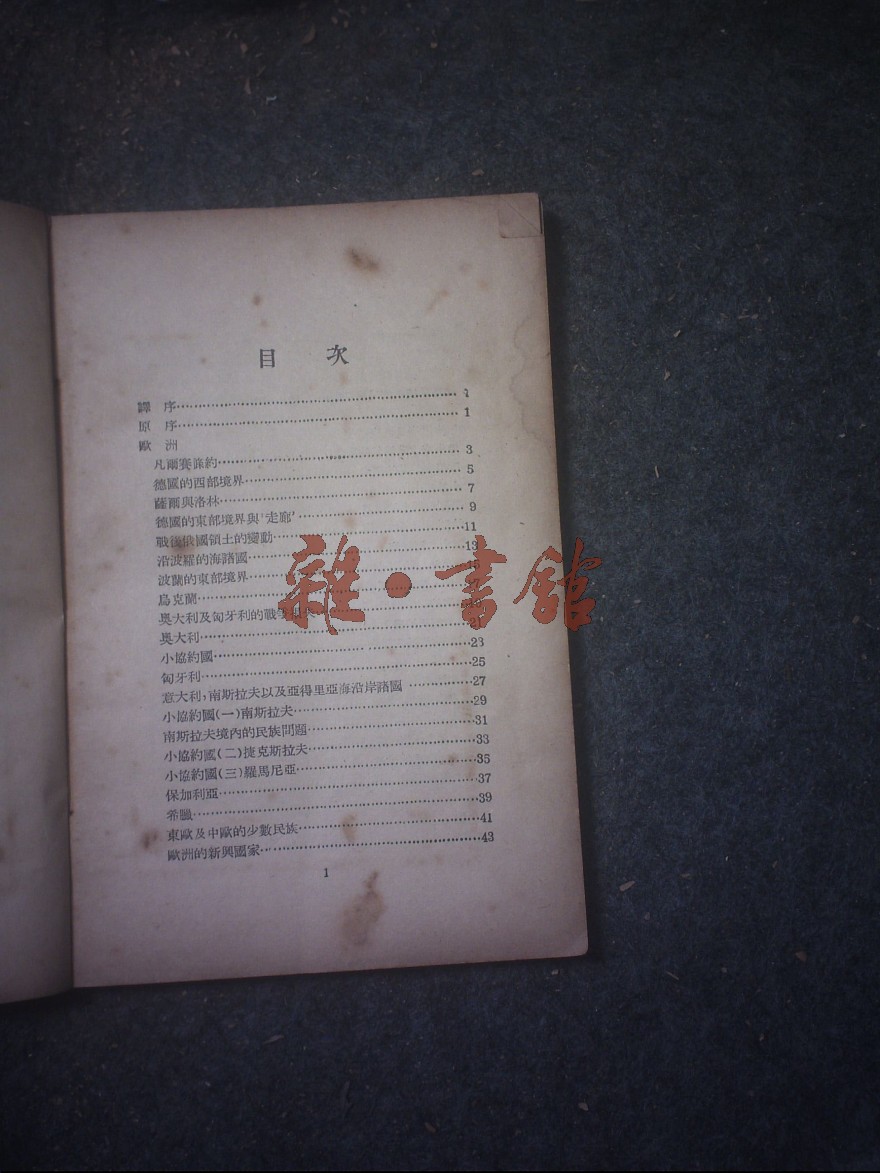 目 次
譯 序
原 序 1
歐 洲
凡爾賽條約 3
德國的西部境界 5
薩爾與洛林 7
德國的東部境界與「走廊」 9
戰後俄國領土的變動 11
沿波羅的海諸國 13
波蘭的東部境界 15
烏克蘭
奧大利及匈牙利的戰
奧大利
小協約國 23
匈牙利 25
意大利,南斯拉夫以及亞得里亞海沿岸諸國 27
小協約國(一)南斯拉夫 29
南斯拉夫境內的民族問題 31
小協約國(二)捷克斯拉夫 33
小協約國(三)羅馬尼亞 35
保加利亞 37
希臘 39
東歐及中歐的少數民族 41
歐洲的新興國家 43
1
雜·書館